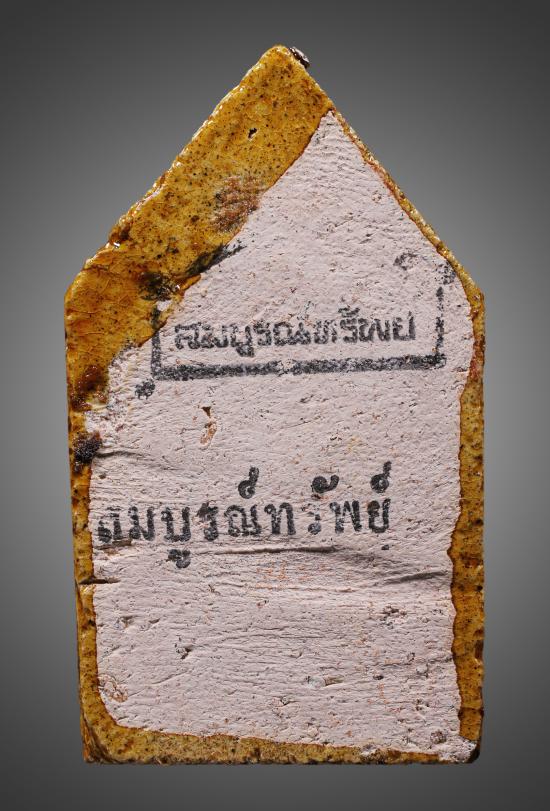 สมบูรณ์ทรัพย์
สมบูรณ์ทรัพย์